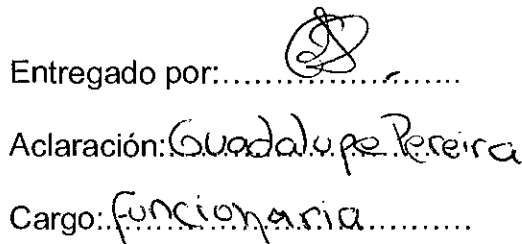 Entregado por:......................
Aclaración: Guadalupe Pereira
Cargo: funcionaria